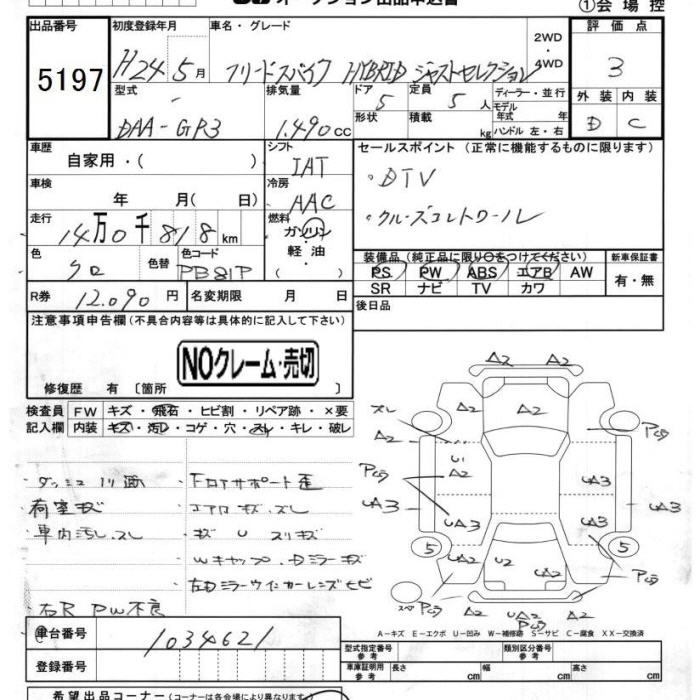 オークション出品申込書
①会場控
出品番号 初度登録年月 車名・グレード 2WD ・ 4WD 評価点
5197 H24 5月 フリードスパイク HYBRID ジャストセレクション 3
型式 排気量 ドア 定員 ディーラー・並行 外装 内装
DAA-GP3 1.490cc 5 5人 モデル年式 年 D C
形状 積載 kg ハンドル 左・右
車歴 自家用・( ) シフト IAT セールスポイント (正常に機能するものに限ります)
車検 年 月( 日) 冷房 AAC ・DTV
走行 14万0千818km 燃料 ガソリン 軽・油 ・クルーズコントロール
色 クロ 色替 色コード PB81P 装備品(純正品に限り○をつけてください) 新車保証書
PS PW ABS エアB AW 有・無
SR ナビ TV カワ
R券 12.090円 名変期限 月 日 後日品
注意事項申告欄(不具合内容等は具体的に記入して下さい)
NOクレーム・売切
修復歴 有 〔箇所 〕
検査員 FW キズ・飛石・ヒビ割・リペア跡・×要
記入欄 内装 キズ・汚レ・コゲ・穴・スレ・キレ・破レ
・ダッシュ
・荷室キズ
・車内汚レ、スレ
・右R PW不良
・F ロアサポート歪
・エアロ キズ、スレ
・キズ U スリキズ
・Wキャップ、Dミラーキズ
・左Dミラーウインカーレンズヒビ
A2 A2
スレ A2 A2 A2 Pクラ
A2 U1
Pクラ A2 UA3
UA3 UA3 UA3 UA3
5 5
UA2 U2 UA2 Pクラ
スペア
Pクラ A2 UA2 A2
Pクラ
A-キズ E-エクボ U-凹み W-補修跡 S-サビ C-腐食 XX-交換済
車台番号 1034621
型式指定番号 参考 類別区分番号 参考
登録番号 車庫証明用 参考 長さ cm 幅 cm 高さ cm
希望出品コーナー(コーナーは各会場により異なります)